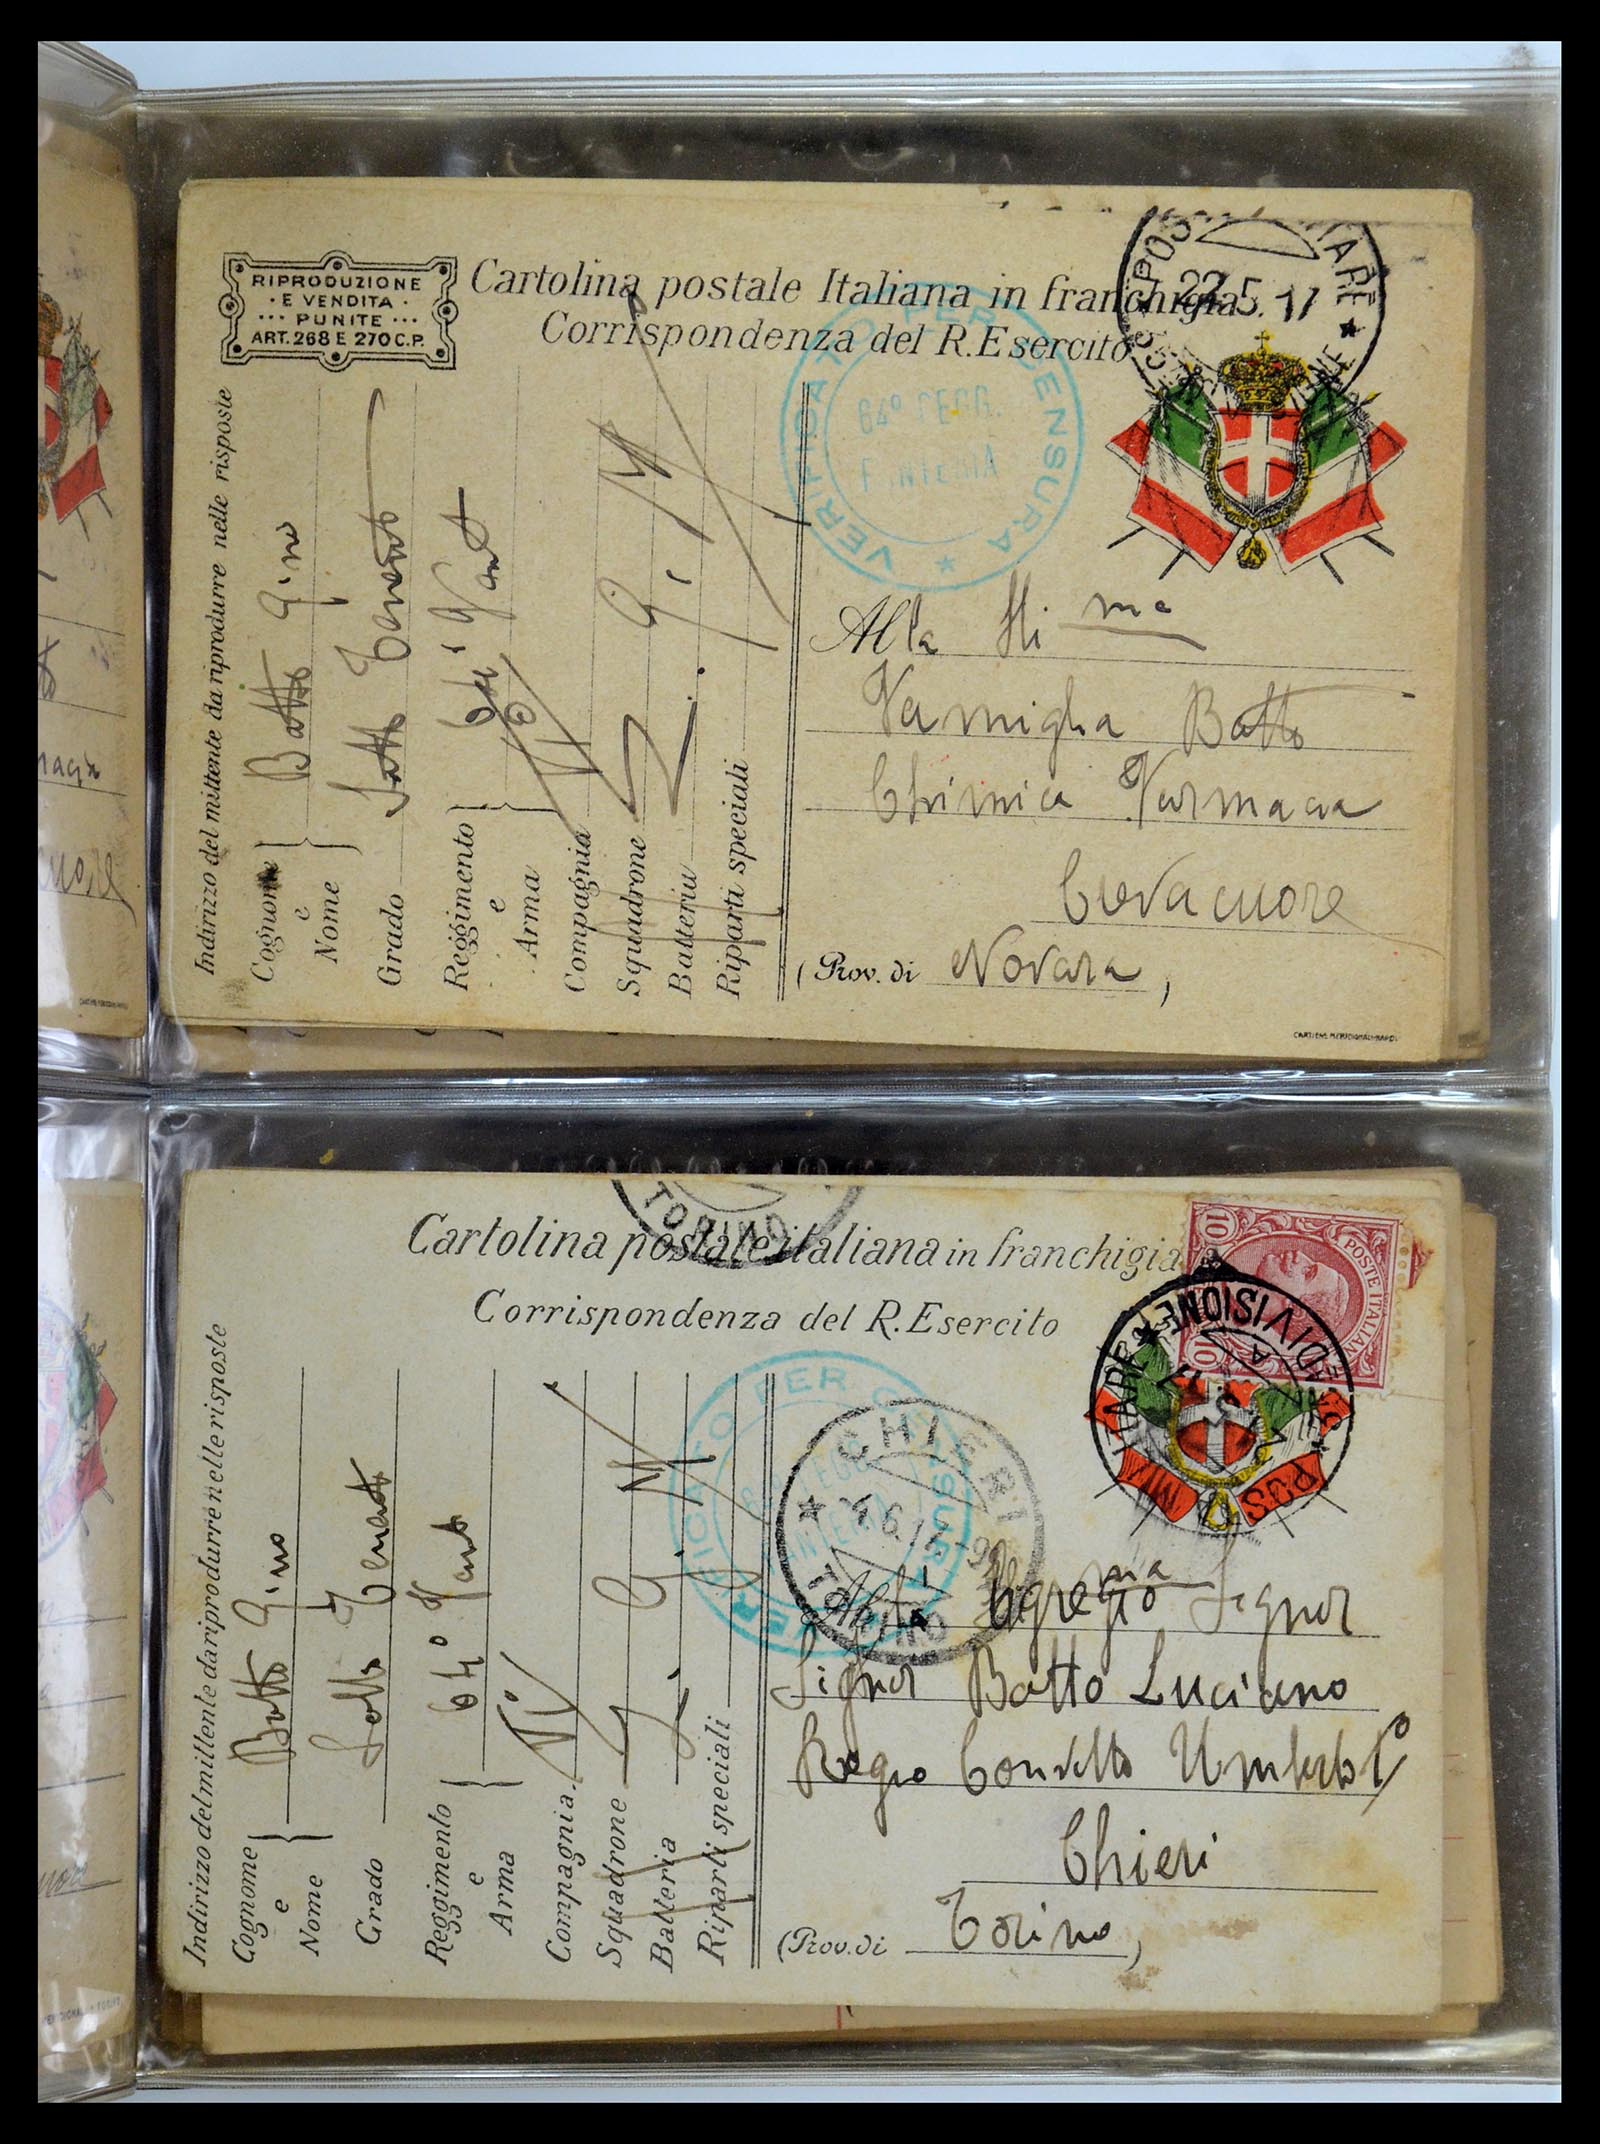 RIPRODUZIONE
· E VENDITA ·
··· PUNITE ···
ART. 268 E 270 C.P.
Cartolina postale Italiana in franchigia
Corrispondenza del R. Esercito
22.5.17
VERIFICATO PER CENSURA
64º REGG.
FANTERIA
Indirizzo del mittente da riprodurre nelle risposte
Cognome e Nome Batto Gino
Grado Sotto Tenente
Reggimento e Arma 64º Fant
Compagnia
Squadrone
Batteria
Riparti speciali
Alla Illma
Famiglia Batto
Chimica Farmacia
Crevacuore
(Prov. di Novara,
CARTIERE MERIDIONALI-BARI
Cartolina postale italiana in franchigia
Corrispondenza del R. Esercito
TORINO
POSTE ITALIANE
10
10
DIVISIONE
POS
MILITARE
VERIFICATO PER CENSURA
CHIERI
4.6.17.-9
TORINO
Indirizzo del mittente da riprodurre nelle risposte
Cognome e Nome Batto Gino
Grado Sotto Tenente
Reggimento e Arma 64º Fant
Compagnia VIª
Squadrone
Batteria
Riparti speciali
All Egregio Signor
Signor Batto Luciano
Regio Convitto Umberto Iº
Chieri
(Prov. di Torino,